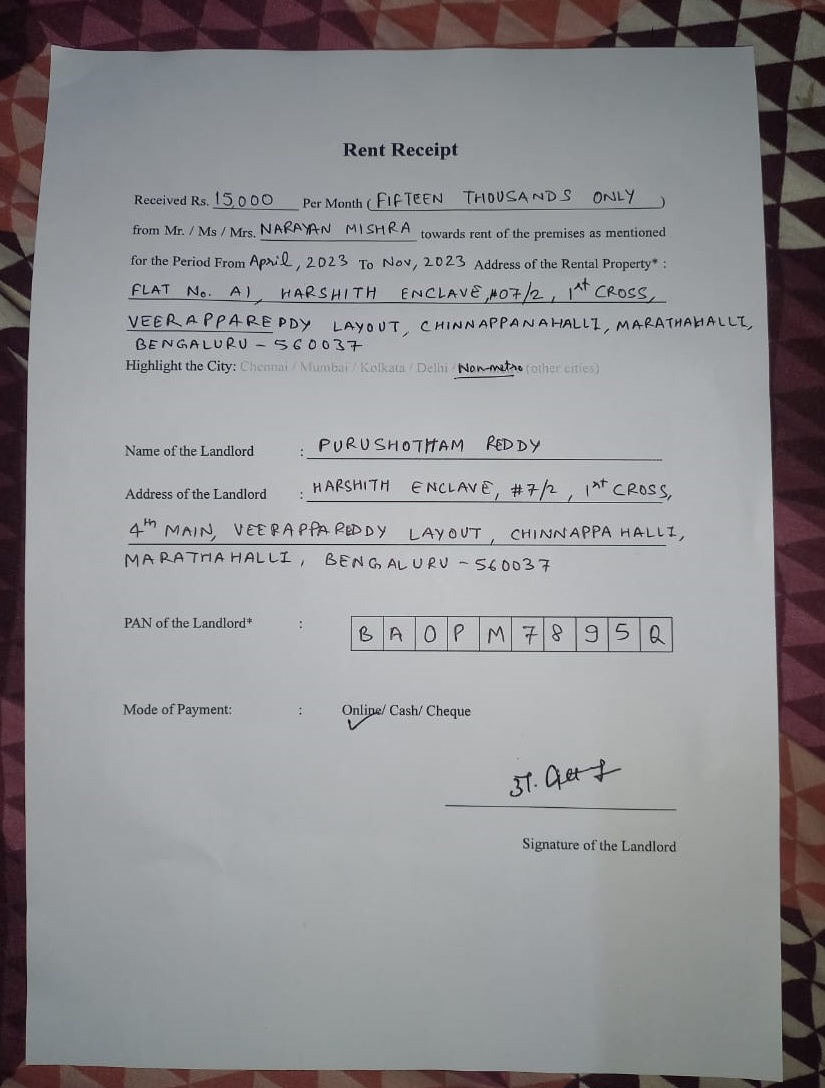 Rent Receipt
Received Rs. 15,000 Per Month ( FIFTEEN THOUSANDS ONLY )
from Mr. / Ms / Mrs. NARAYAN MISHRA towards rent of the premises as mentioned
for the Period From April, 2023 To Nov, 2023 Address of the Rental Property* :
FLAT No. A1, HARSHITH ENCLAVE, #07/2, 1st CROSS,
VEERAPPAREDDY LAYOUT, CHINNAPPANAHALLI, MARATHAHALLI,
BENGALURU - 560037
Highlight the City: Chennai / Mumbai / Kolkata / Delhi / Non-metro (other cities)
Name of the Landlord : PURUSHOTHAM REDDY
Address of the Landlord : HARSHITH ENCLAVE, #7/2, 1st CROSS,
4th MAIN, VEERAPPAREDDY LAYOUT, CHINNAPPA HALLI,
MARATHAHALLI, BENGALURU - 560037
PAN of the Landlord* : B A O P M 7 8 9 5 Q
Mode of Payment: : Online/ Cash/ Cheque
Signature of the Landlord